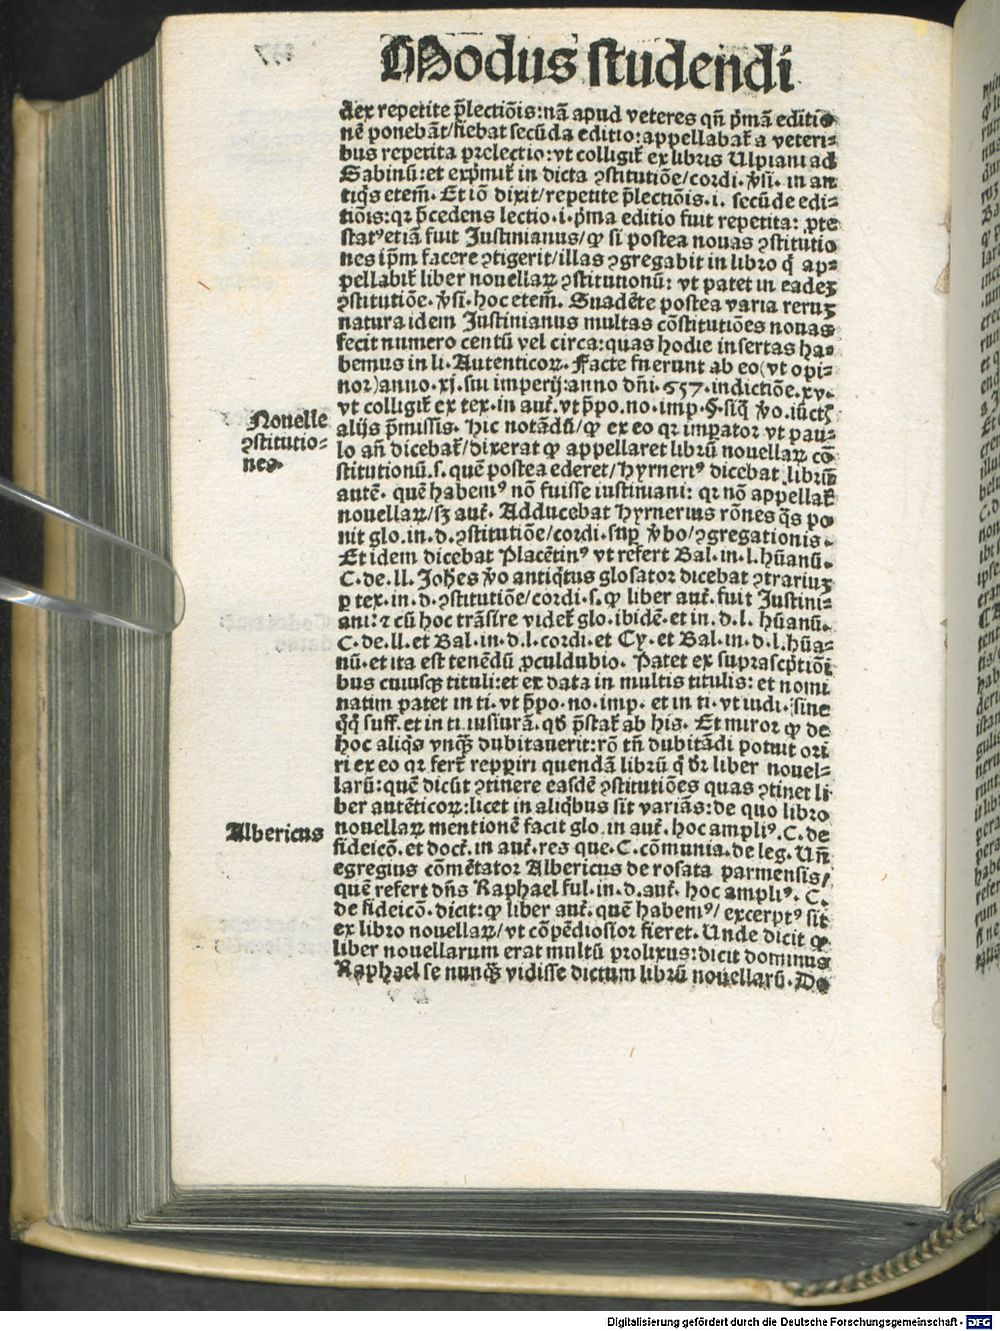 Modus studendi
dex repetite p̄lectiōis:nā apud veteres qn̄ p̄mā editio
nē ponebāt/fiebat secūda editio:appellabať a veteri⸗
bus repetita prelectio:vt colligiť ex libris Ulpiani ad
Sabinū:et exp̄miť in dicta ꝯstitutiōe/cordi.ꝟsi. in an
tiq̄s etem̄. Et iō dixit/repetite p̄lectiōis.i. secūde edi⸗
tiōis:qꝛ p̄cedens lectio.i.p̄ma editio fuit repetita: ꝓte
statꝰ etiā fuit Justinianus/ꝙ si postea nouas ꝯstitutio
nes ip̄m facere ꝯtigerit/illas ꝯgregabit in libro q̇ ap⸗
pellabiť liber nouellaꝝ ꝯstitutionū: vt patet in eadeꝫ
ꝯstitutiōe.ꝟsi.hoc etem̄. Suadēte postea varia reruꝫ
natura idem Justinianus multas cōstitutiōes nouas
fecit numero centū vel circa:quas hodie insertas ha⸗
bemus in li.Autenticoꝝ. Facte fuerunt ab eo(vt opi⸗
nor)anno.xj.sui imperij:anno dn̄i.557.indictiōe.xv.
vt colligiť ex tex.in auť.vt p̄po.no.imp.§.siq̇ ꝟo.iūctꝭ
Nouelle
ꝯstitutio⸗
nes.
alijs p̄missis. Hic notādū/ꝙ ex eo qꝛ imꝑator vt pau⸗
lo an̄ dicebať/dixerat ꝙ appellaret librū nouellaꝝ cō
stitutionū.s.quē postea ederet/Hyrneriꝰ dicebat librū
autē. quē habemꝰ nō fuisse iustiniani: qꝛ nō appellať
nouellaꝝ/sꝫ auť. Adducebat Hyrnerius rōnes q̄s po
nit glo.in.d.ꝯstitutiōe/cordi.suꝑ ꝟbo/ꝯgregationis.
Et idem dicebat Placētinꝰ vt refert Bal.in.l.hūanū.
C.de.ll. Joh̄es ꝟo antiq̇tus glosator dicebat ꝯtrariuꝫ
ꝑ tex.in.d.ꝯstitutiōe/cordi.s.ꝙ liber auť.fuit Justini⸗
ani:⁊ cū hoc trāsire videť glo.ibidē.et in.d.l. hūanū.
C.de.ll.et Bal.in.d.l.cordi.et Cy.et Bal.in.d.l.hūa⸗
nū.et ita est tenēdū ꝓculdubio. Patet ex suprascp̄tiōi
bus cuiusqꝫ tituli:et ex data in multis titulis: et nomi
natim patet in ti.vt p̄po.no.imp. et in ti.vt iudi. sine
q̇q̇ suff.et in ti.iusiurā.qd̄ p̄stať ab his. Et miror ꝙ de
hoc aliq̄s vnqꝫ dubitauerit:rō tn̄ dubitādi potuit ori
ri ex eo qꝛ ferť reꝑꝑiri quendā librū q̇ dr̄ liber nouel⸗
larū:quē dicūt ꝯtinere easdē ꝯstitutiōes quas ꝯtinet li
ber autēticoꝝ:licet in aliq̇bus sit variās:de quo libro
Albericus
nouellaꝝ mentionē facit glo.in auť.hoc ampliꝰ.C.de
fideicō.et docť.in auť.res que.C.cōmunia.de leg.Un̄
egregius cōmētator Albericus de rosata parmensis/
quē refert dn̄s Raphael ful.in.d.auť. hoc ampliꝰ. C.
de fideicō.dicit:ꝙ liber auť.quē habemꝰ/ excerptꝰ sit
ex libro nouellaꝝ/vt cōpēdiosior fieret. Unde dicit ꝙ
liber nouellarum erat multū prolixus:dicit dominus
Raphael se nunqꝫ vidisse dictum librū nouellarū. Do
Digitalisierung gefördert durch die Deutsche Forschungsgemeinschaft - DFG